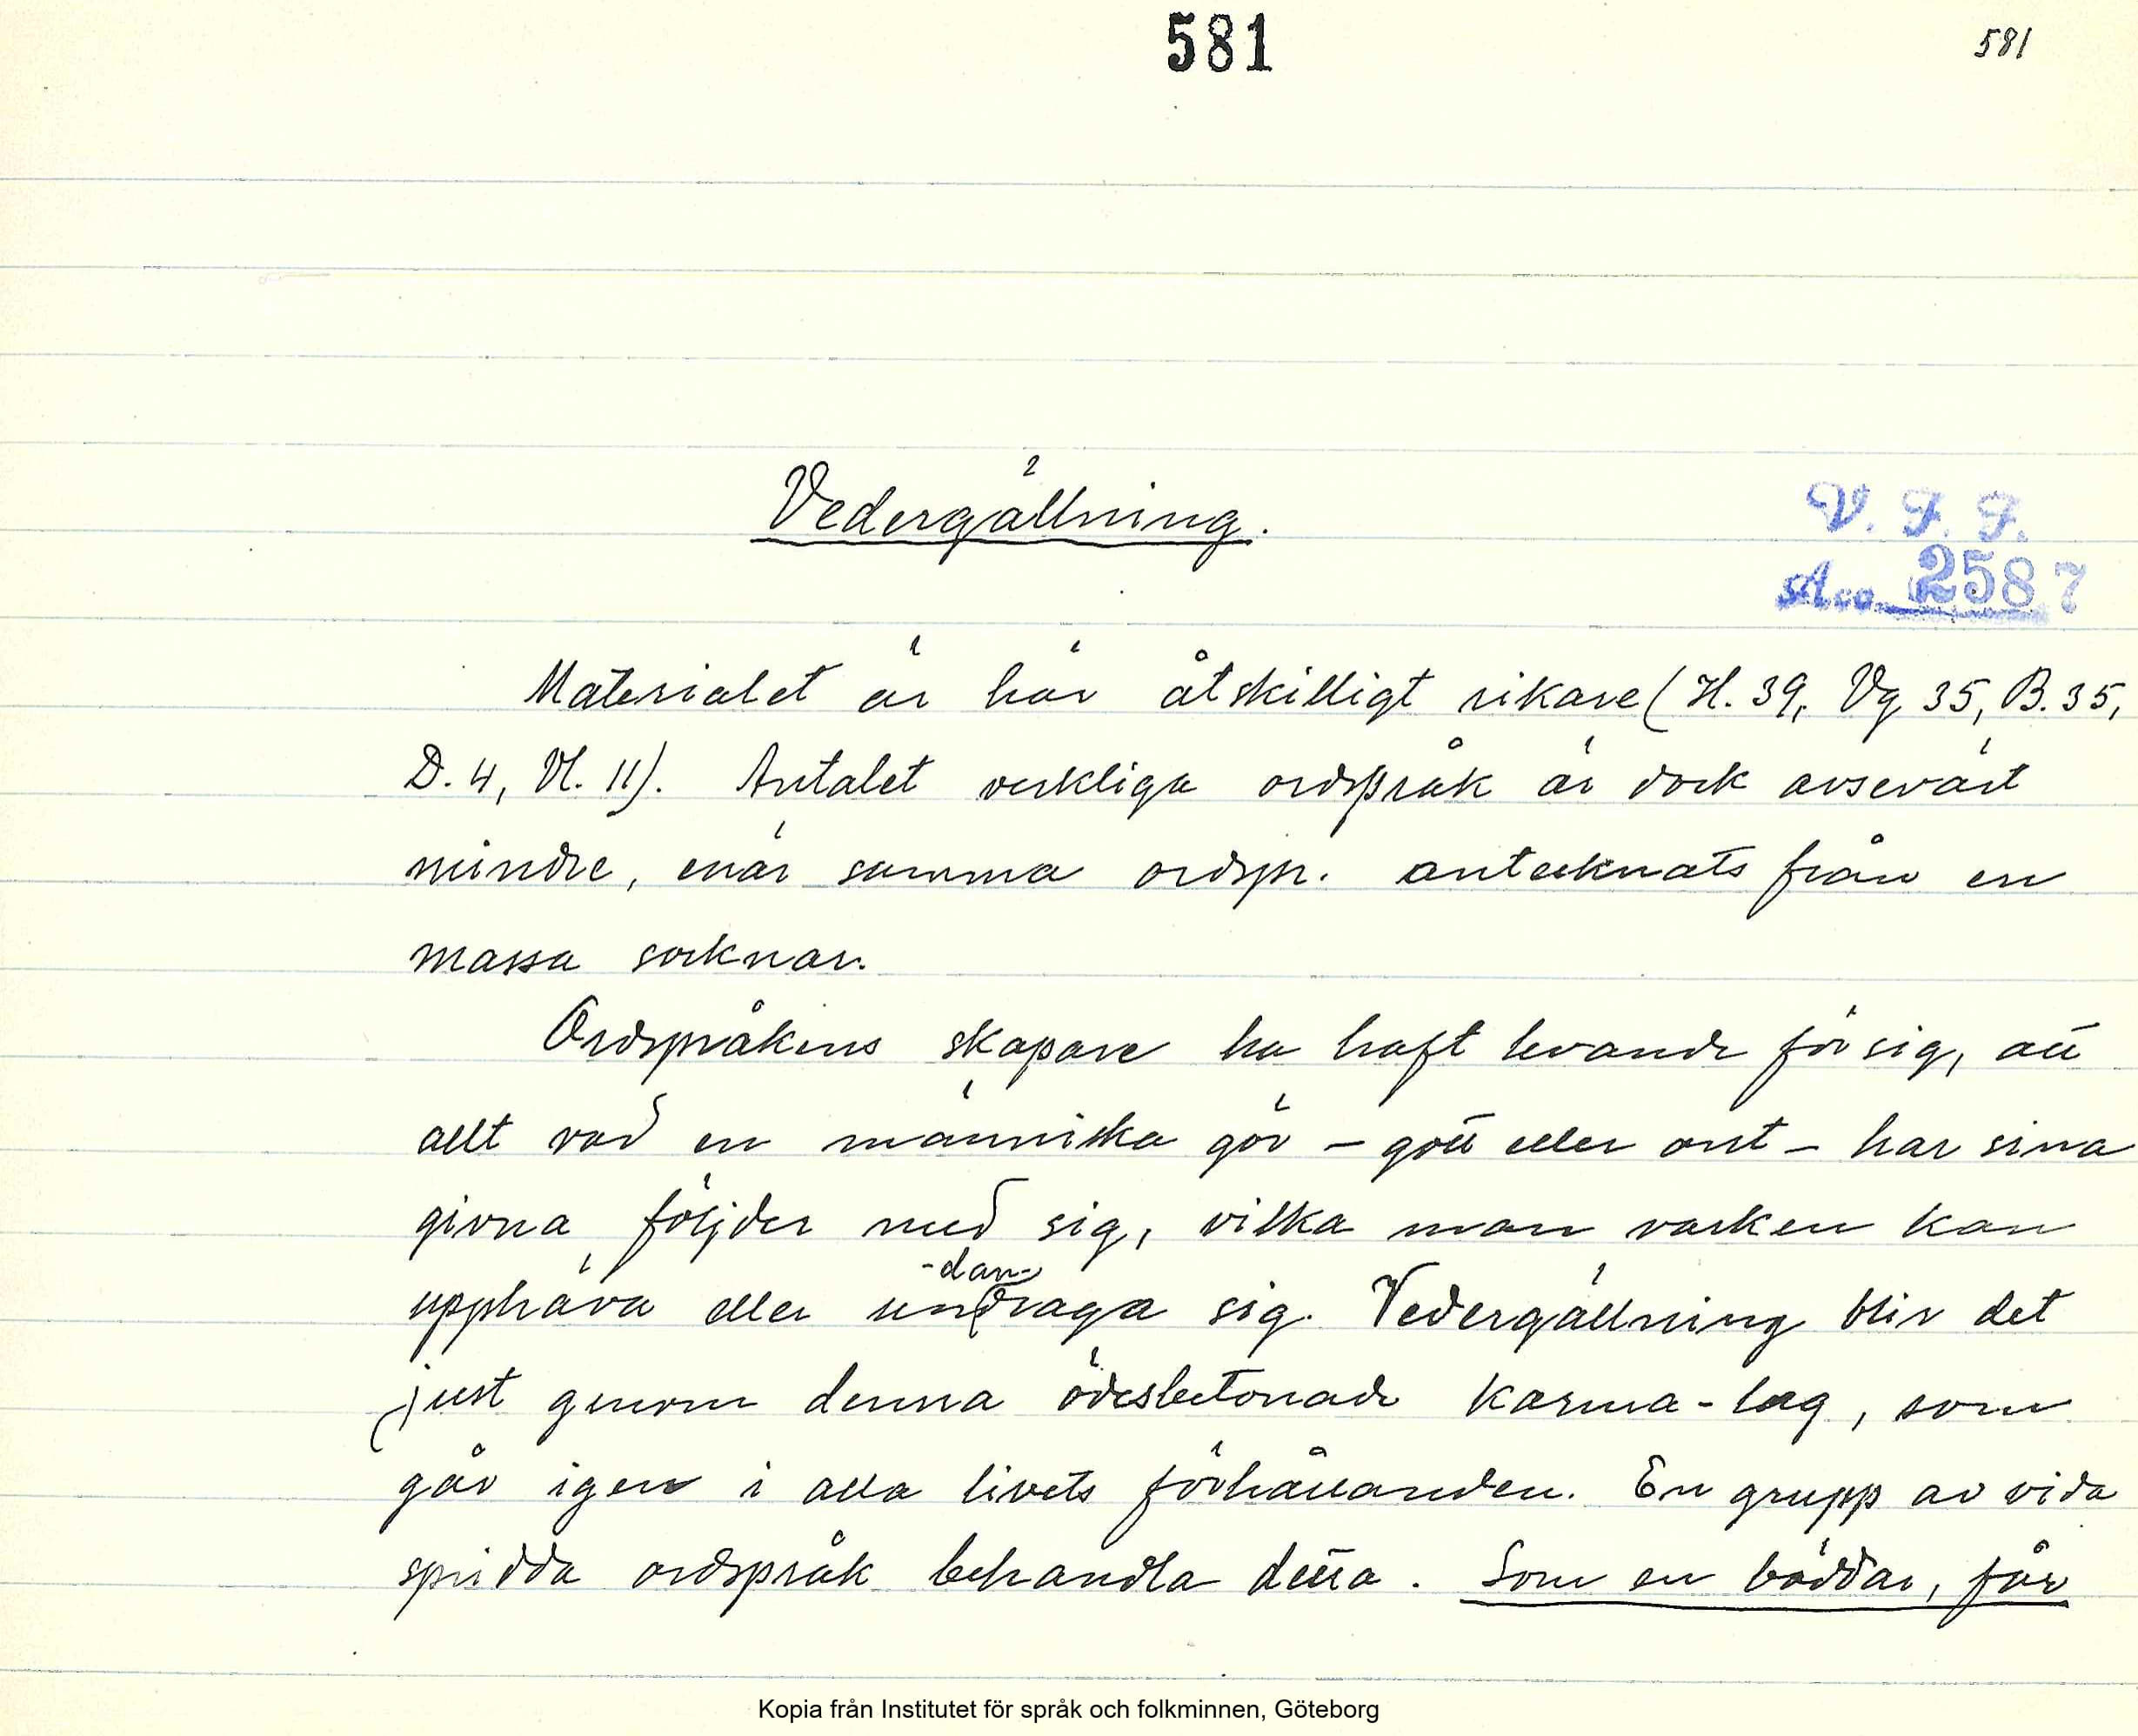 581
581
Vedergällning.
V. F. F.
Acc. 2587
Materialet är här åtskilligt rikare (H. 39, Vg 35, B. 35,
D. 4, Vl. 11). Antalet verkliga ordspråk är dock avsevärt
mindre, enär samma ordspr. antecknats från en
massa socknar.
Ordspråkens skapare ha haft levande för sig, att
allt vad en människa gör – gott eller ont – har sina
givna följder med sig, vilka man varken kan
upphäva eller undraga sig. Vedergällning blir det
-dan-
just genom denna ödesbetonade Karma-lag, som
går igen i alla livets förhållanden. En grupp av vida
spridda ordspråk behandla detta. Som en bäddar, får
Kopia från Institutet för språk och folkminnen, Göteborg